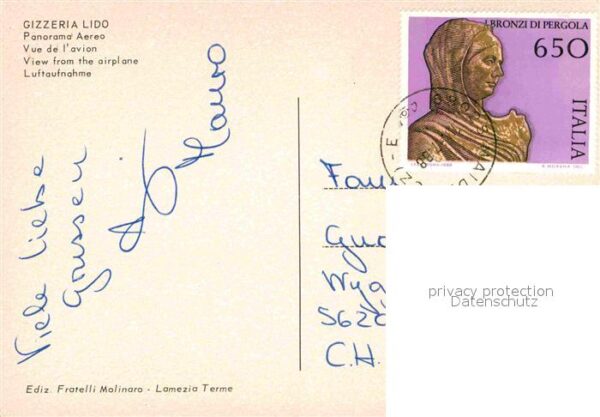 GIZZERIA LIDO
Panorama Aereo
Vue de l'avion
View from the airplane
Luftaufnahme
Viele liebe
Grüssen
Mauro
I BRONZI DI PERGOLA
650
ITALIA
Fam
5620
C.H.
privacy protection
Datenschutz
Ediz. Fratelli Molinaro - Lamezia Terme